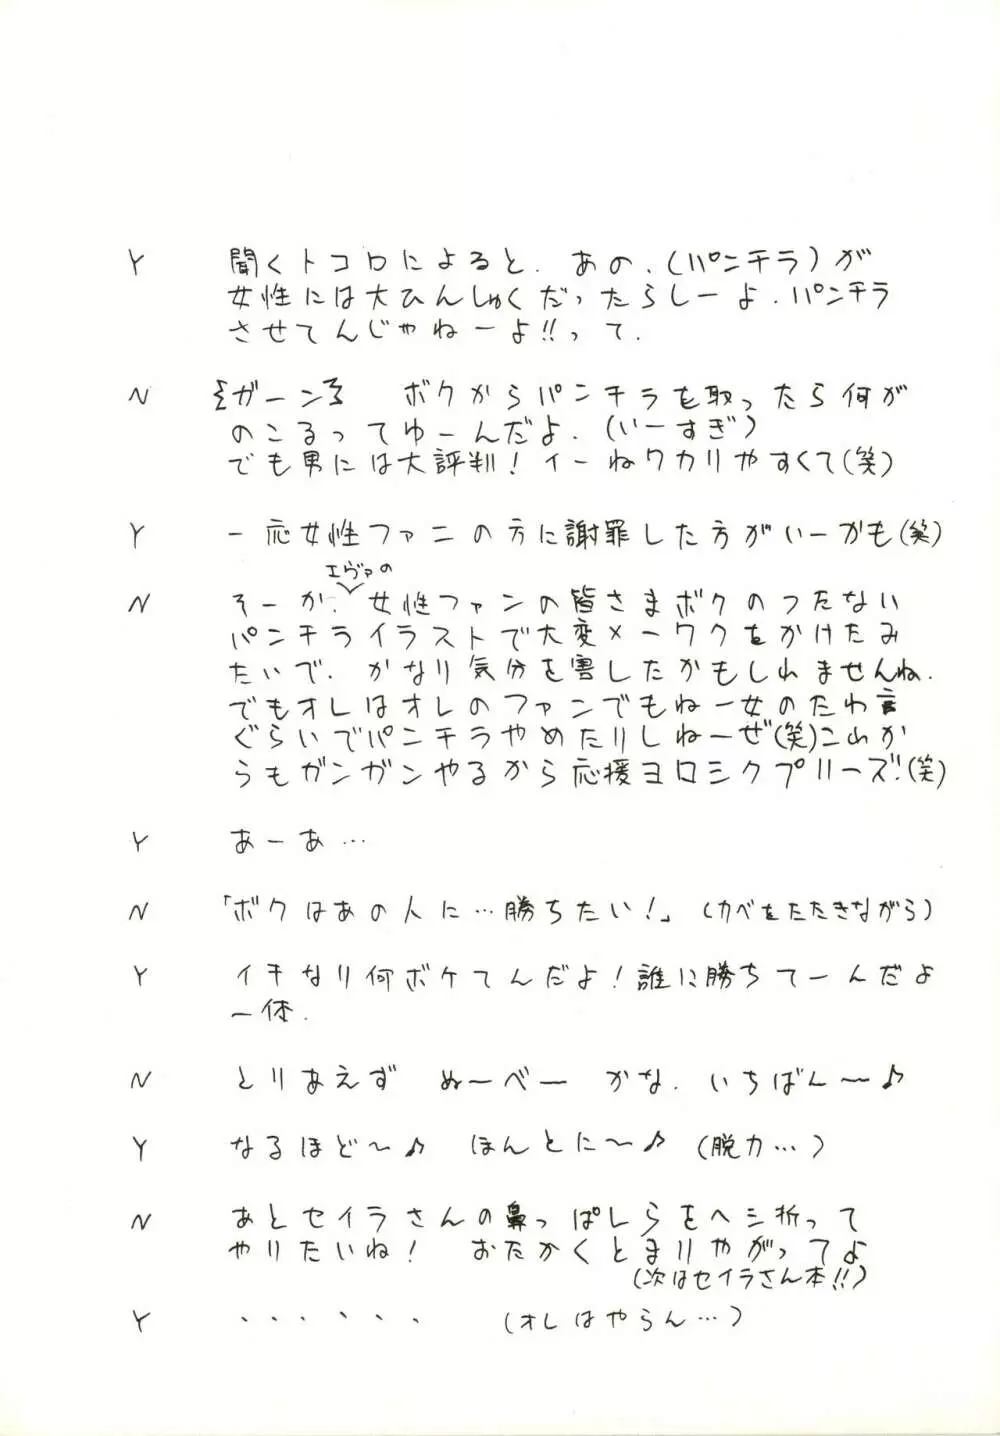 Y 聞くトコロによると.あの.(パンチラ)が
女性には大ひんしゅくだったらしーよ.パンチラ
させてんじゃねーよ!!って.
N {ガーン} ボクからパンチラを取ったら何が
のこるってゆーんだよ.(いーすぎ)
でも男には大評判!イーねワカリやすくて(笑)
Y 一応女性ファンの方に謝罪した方がいーかも(笑)
エヴァの
N そーか.女性ファンの皆さまボクのつたない
パンチライラストで大変メーワクをかけたみ
たいで.かなり気分を害したかもしれませんね.
でもオレはオレのファンでもねー女のたわ言
ぐらいでパンチラやめたりしねーぜ(笑)これか
らもガンガンやるから応援ヨロシクプリーズ!(笑)
Y あーあ…
N 「ボクはあの人に…勝ちたい!」(カベをたたきながら)
Y イキなり何ボケてんだよ!誰に勝ちてーんだよ
一体.
N とりあえず ぬーべー かな.いちばん〜♪
Y なるほど〜♪ ほんとに〜♪ (脱力…)
N あとセイラさんの鼻っぱしらをヘシ折って
やりたいね! おたかくとまりやがってよ
(次はセイラさん本!!)
Y ・・・・・・ (オレはやらん…)